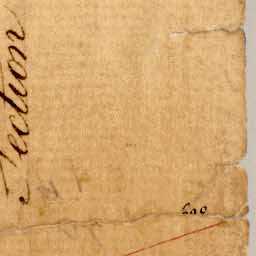 Section
600